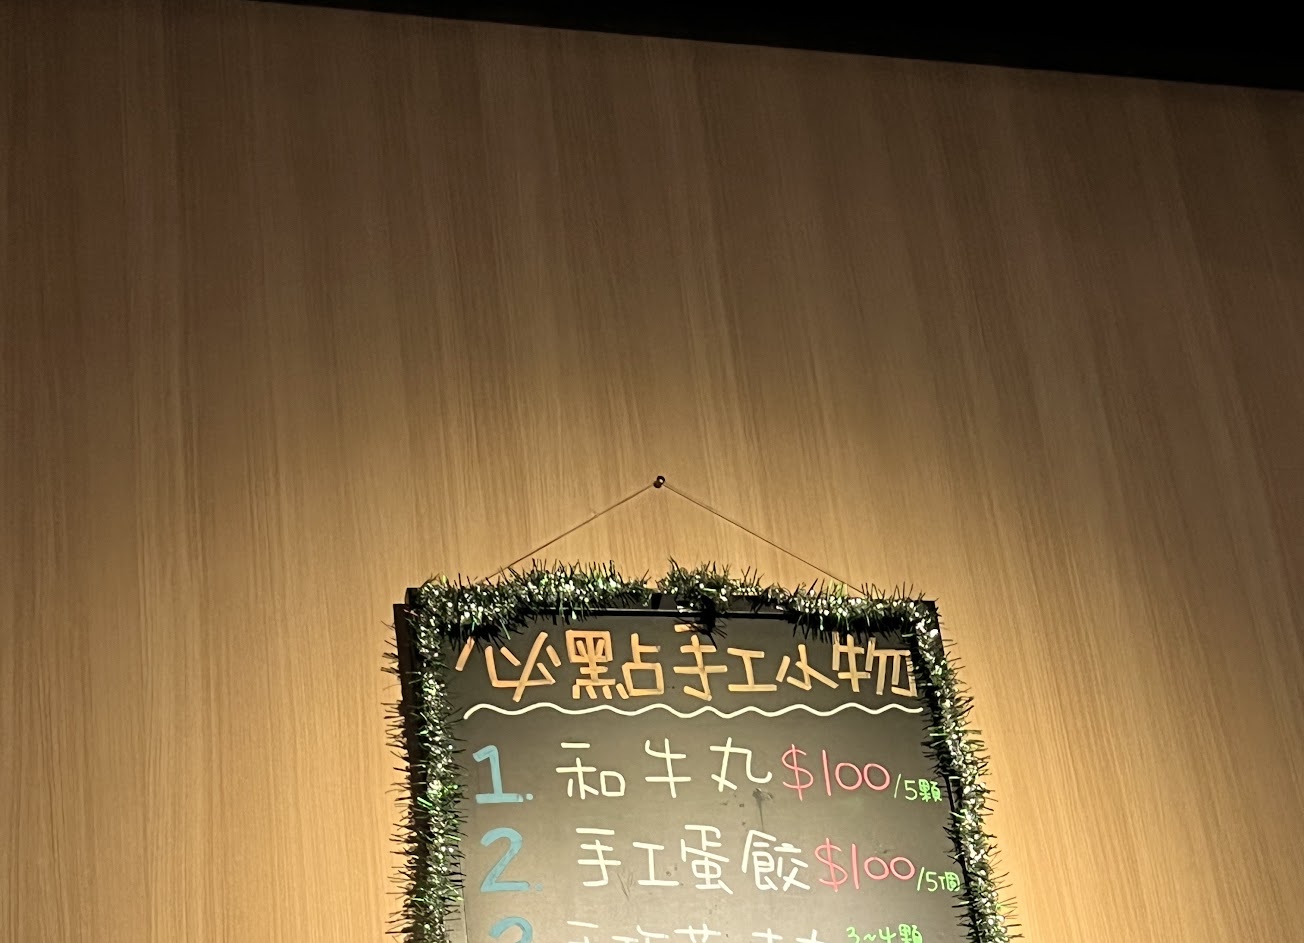 必點手工小物
1. 和牛丸 $100/5顆
2. 手工蛋餃 $100/5個
3~4顆